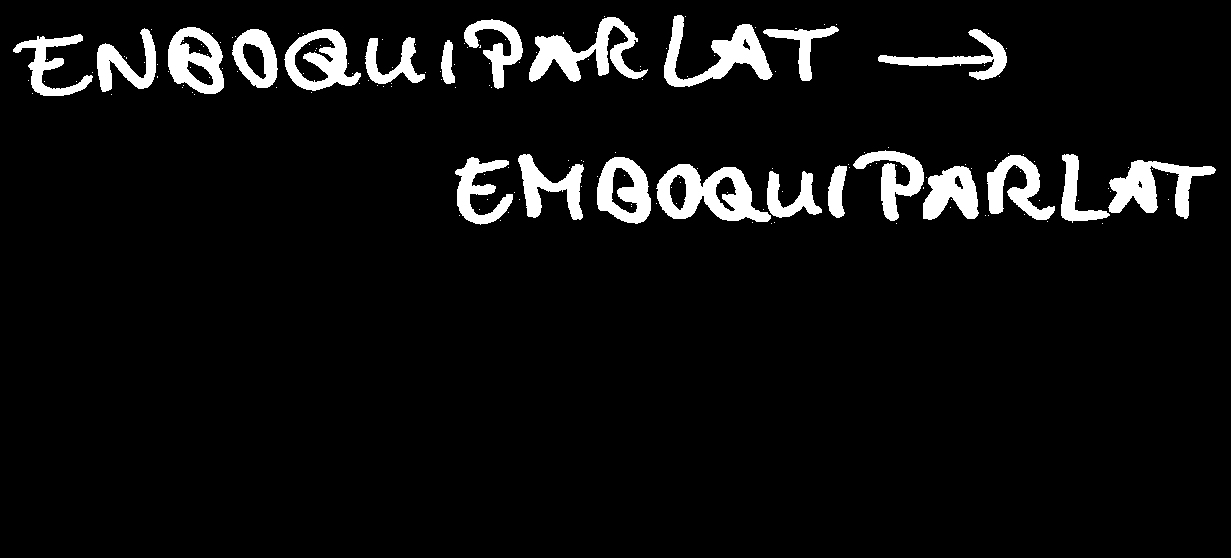 ENBOQUIPARLAT →
EMBOQUIPARLAT